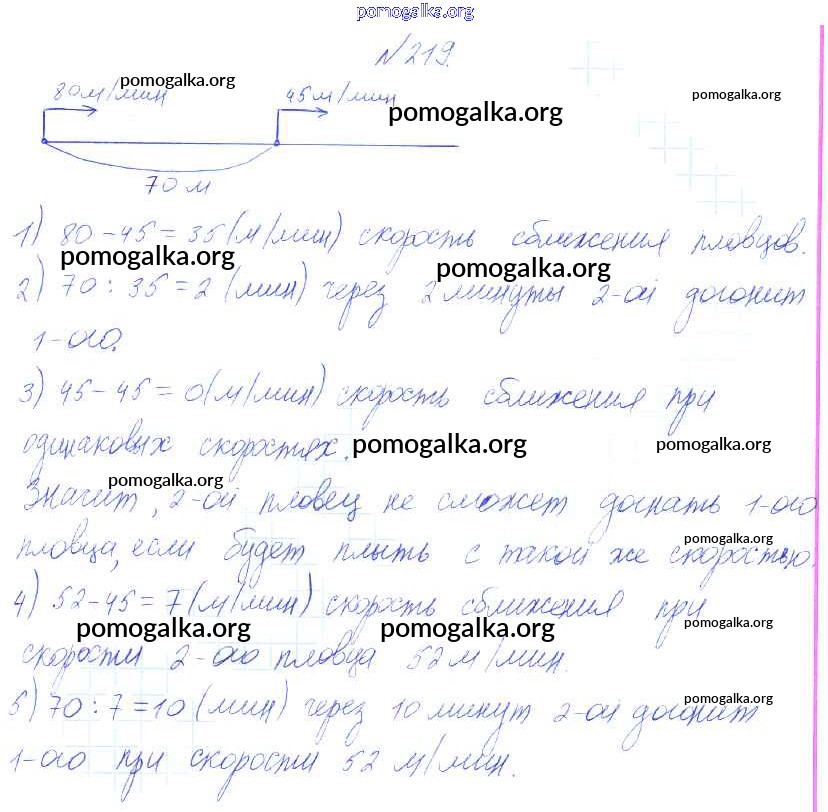 pomogalka.org
№219.
80м/мин pomogalka.org 45м/мин pomogalka.org pomogalka.org
70 м
1) 80-45=35(м/мин) скорость сближения пловцов.
pomogalka.org pomogalka.org
2) 70:35=2 (мин) через 2 минуты 2-ой догонит
1-ого. pomogalka.org
3) 45-45=0(м/мин) скорость сближения при
одинаковых скоростях. pomogalka.org pomogalka.org
pomogalka.org
Значит, 2-ой пловец не сможет догнать 1-ого
pomogalka.org
пловца, если будет плыть с такой же скоростью.
4) 52-45=7(м/мин) скорость сближения при
pomogalka.org pomogalka.org pomogalka.org
скорости 2-ого пловца 52 м/мин.
pomogalka.org
5) 70:7=10 (мин) через 10 минут 2-ой догонит
1-ого при скорости 52 м/мин.